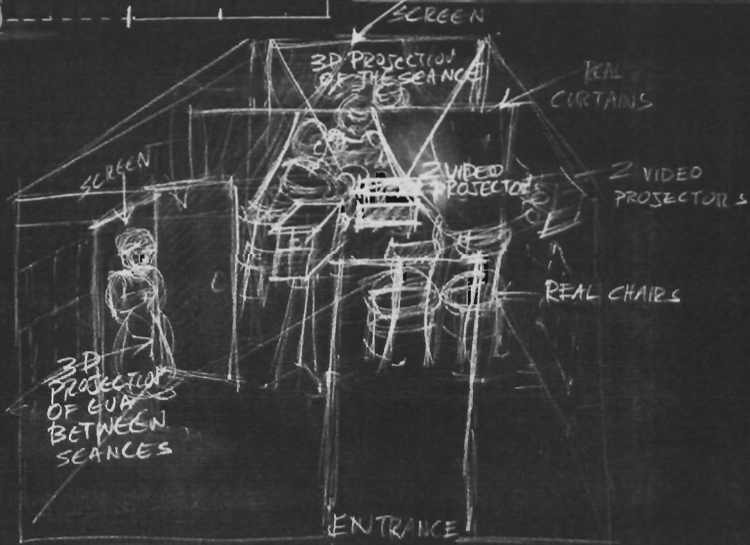 SCREEN
3D PROJECTION
OF THE SEANCE
REAL
CURTAINS
SCREEN
2 VIDEO
PROJECTORS
2 VIDEO
PROJECTORS
REAL CHAIRS
3D
PROJECTION
OF EVA
BETWEEN
SEANCES
ENTRANCE